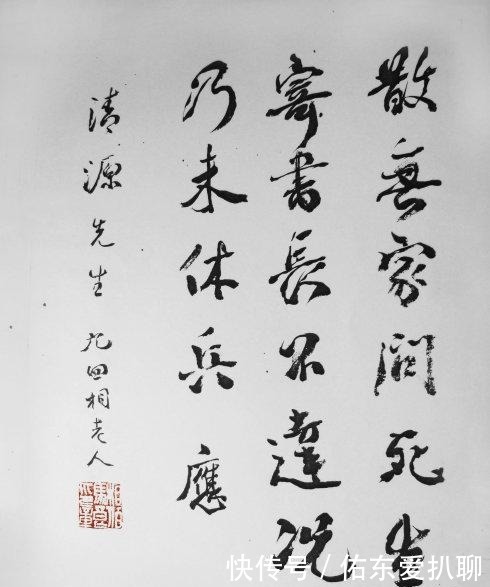 散無家問死生
寄書長不達況
乃未休兵 應
清源先生 四相老人
快传号 / 佑东爱扒聊